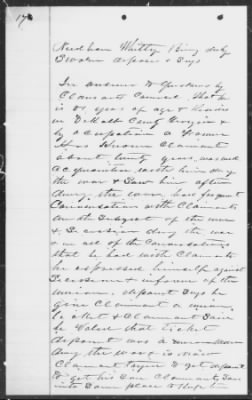 17
Needham Whitley Being duly
Sworn deposes & Says
In answer to questions by
Claimants Counsel. that he
is 51 years of age & lives
in DeKalb County Georgia &
by occupation a Farmer
Has Known Claimant
about twenty years, was well
acquainted with him during
the war & Saw him often
during the war, had frequent
Conversations with Claimant
on the Subject of the war
& Secession during the war
& in all of the Conversations
that he had with Claimant
he expressed himself against
Secession in favor of the
union, deponent Says he
give Claimant a union
ticket & Claimant Said
he Voted that ticket
deponent was a union man
during the war &
Claimant to get deponent
to get his Son
into Some place to Keep